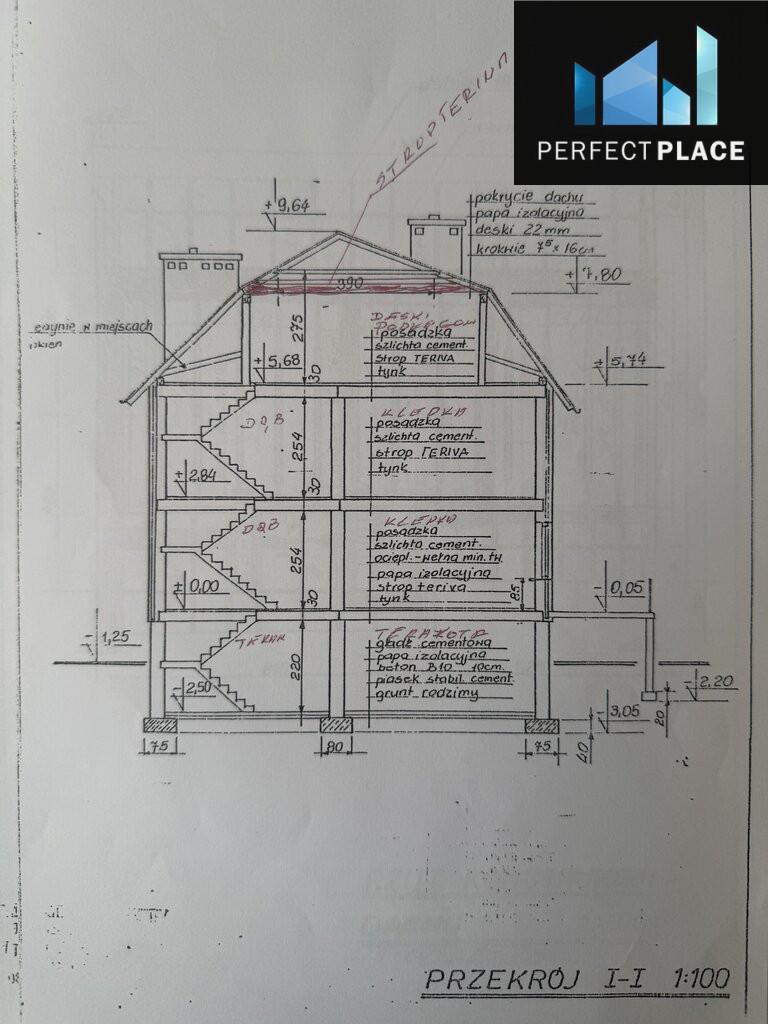 PERFECT PLACE
STROP TERIVA
+ 9,64
pokrycie dachu
papa izolacyjna
deski 22 mm
krokwie 7⁵ x 16 cm
+ 7,80
390
w miejscach
okien
275
DESKI
PODŁOGOW
posadzka
szlichta cement.
strop TERIVA
tynk
+ 5,68
30
+ 5,74
DĄB
KLEPKA
posadzka
szlichta cement.
strop TERIVA
tynk
254
+ 2,84
30
DĄB
KLEPKA
posadzka
szlichta cement.
ociepl.-wełna min.
papa izolacyjna
strop teriva
tynk
254
± 0,00
30
85
- 0,05
- 1,25
TERAKOTA
gładź cementowa
papa izolacyjna
beton B10 - 10cm.
piasek stabil. cement.
grunt rodzimy
220
- 2,50
- 2,20
- 3,05
20
40
75
80
75
PRZEKRÓJ I-I 1:100